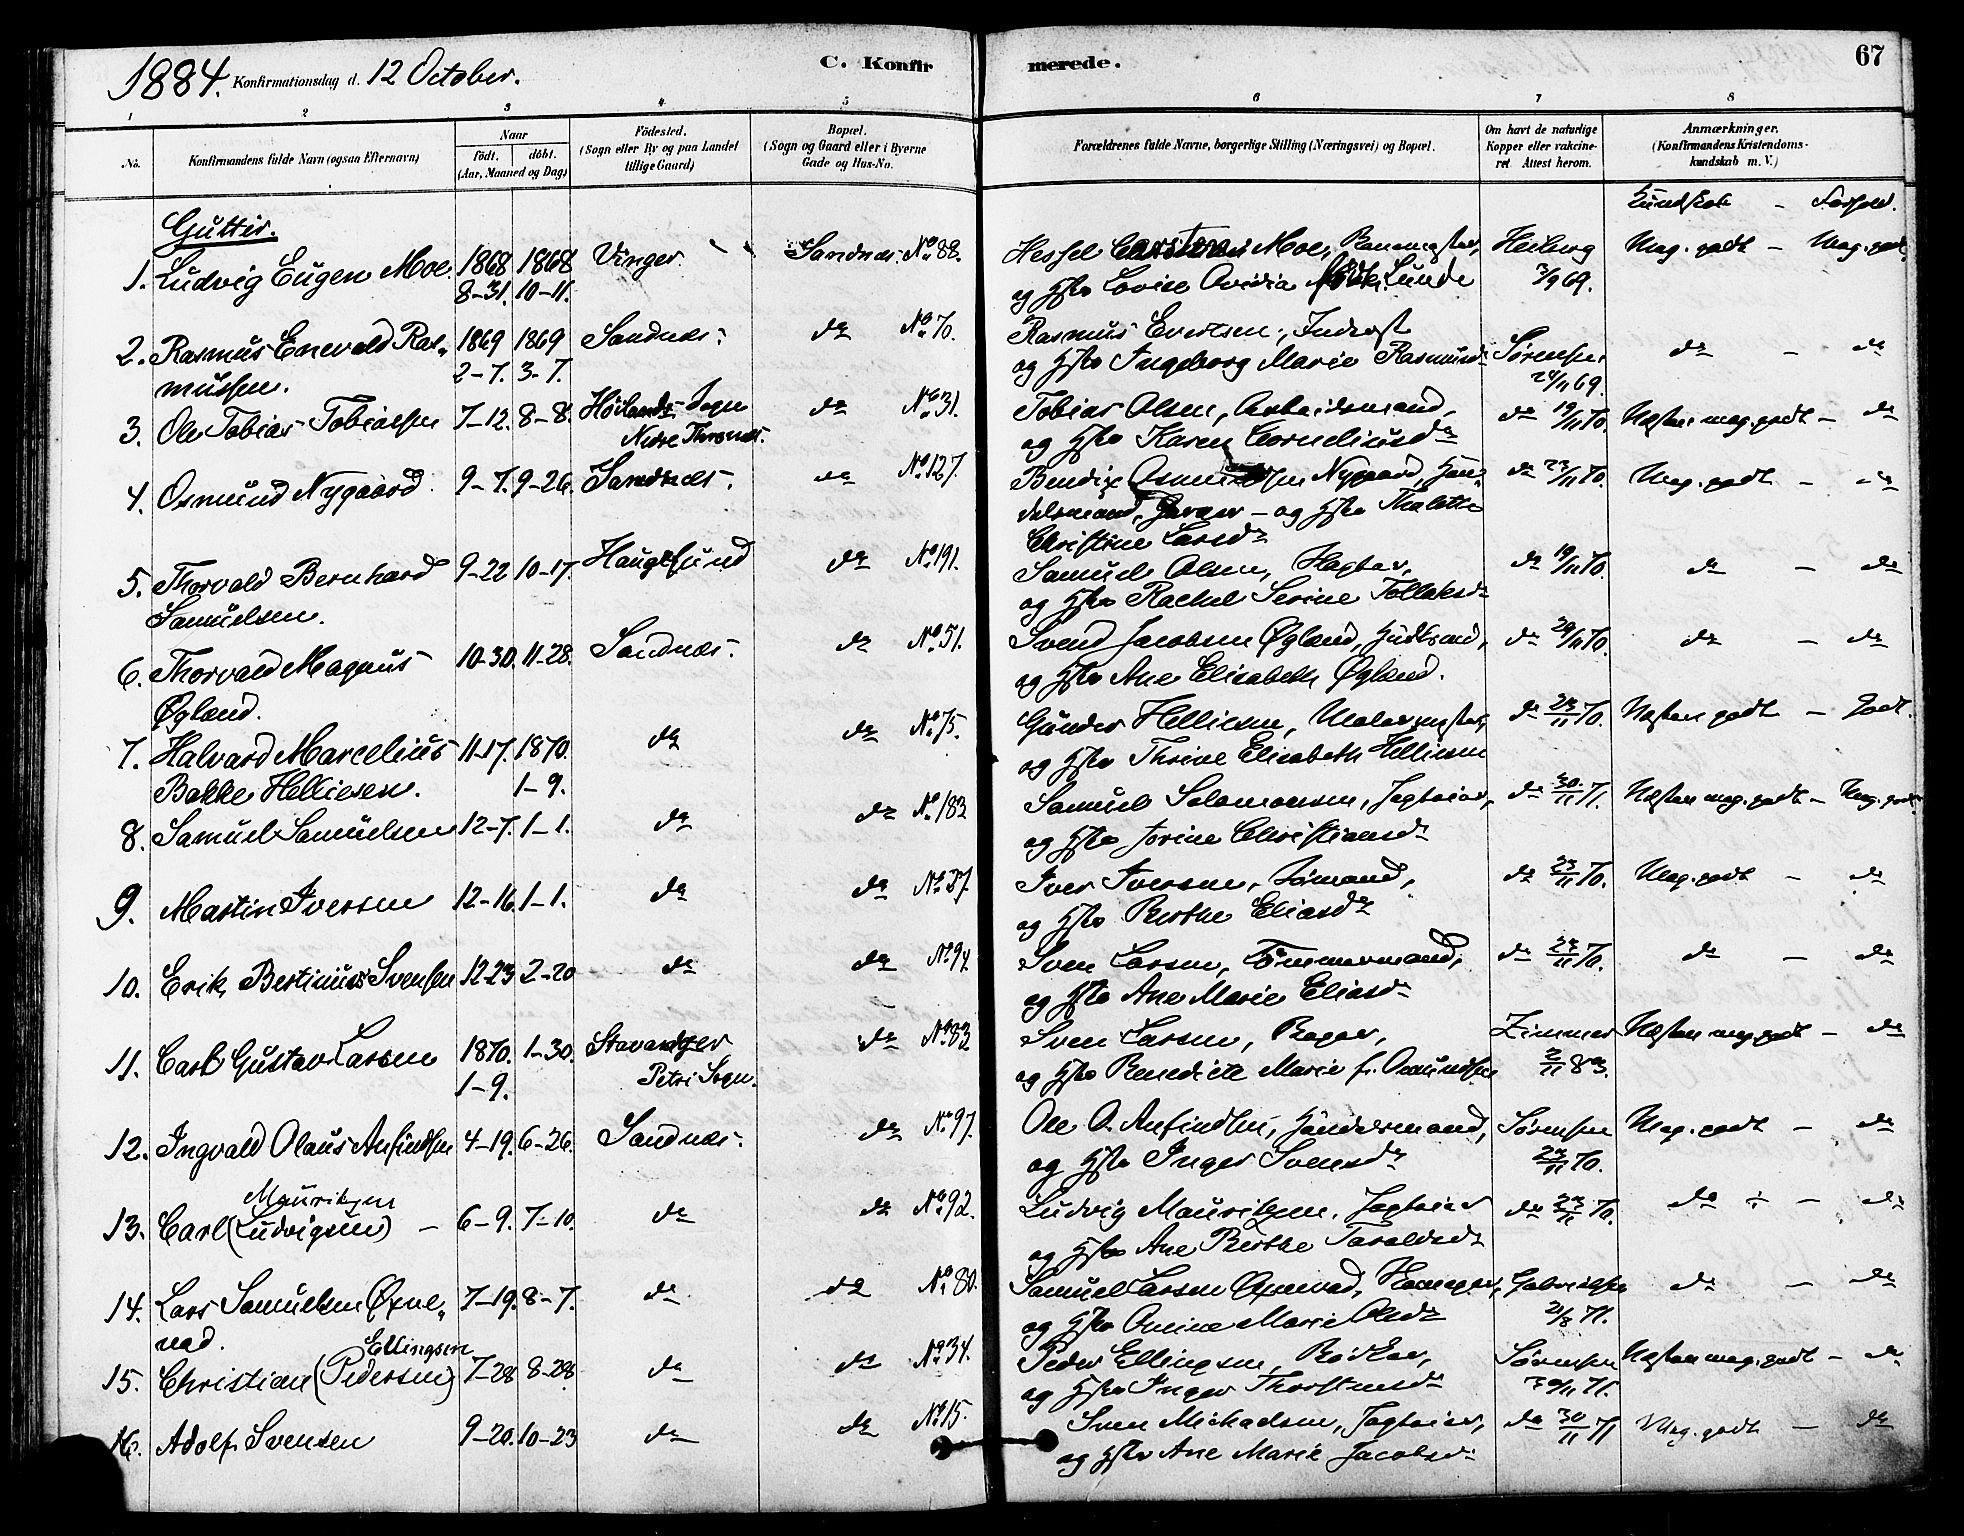 1884. Konfirmationsdag d. 12 October. C. Konfirmerede. 67
1 2 3 4 5 6 7 8
No. Konfirmandens fulde Navn (ogsaa Efternavn) Naar födt. döbt. (Aar, Maaned og Dag) Födested. (Sogn eller By og paa Landet tillige Gaard) Bopæl. (Sogn og Gaard eller i Byerne Gade og Hus-No. Forældrenes fulde Navne, borgerlige Stilling (Næringsvei) og Bopæl. Om havt de naturlige Kopper eller vakcineret Attest herom. Anmærkninger. (Konfirmandens Kristendomskundskab m. V.)
Kundskab - Forhold.
Gutter.
1. Ludvig Eugen Moe 1868 1868 Vinger Sandnæs No 88. Hessel Carstens Moe, Banemester, Heiberg Meg. godt - Meg. godt
8-31. 10-11. og Hstr Lovise Ovidia født Lunde 3/9 69.
2. Rasmus Enevald Ras- 1869 1869 Sandnæs. do No 70. Rasmus Evertsen, Inderst
mussen. 2-7. 3-7. og Hstr Ingeborg Marie Rasmusd. Sørensen 24/11 69. do - do
3. Ole Tobias Tobiassen 7-12. 8-8. Høilands Sogn do No 31. Tobias Olsen, Arbeidsmand, do 19/11 70. Næsten meg. godt - do
Nedre og Hstr Karen Corneliusdr
4. Osmund Nygaard 9-7. 9-26. Sandnæs. do No 127. Bendix Osmundsen Nygaard, Han- do 23/11 70. Meg. godt - do
delsmand, Farver - og Hstr Thalette
Christine Larsdr
5. Thorvald Bernhard 9-22 10-17. Haugesund do No 191. Samuel Olsen, do 19/11 70. do - do
Samuelsen. og Hstr Rachel Serine Tollaksdr
6. Thorvald Magnus 10-30. 11-28. Sandnæs. do No 51. Svend Jacobsen Øgland, do 29/11 70. do - do
Øgland. og Hstr Ane Elisabeth Øgland.
7. Halvard Marcelius 11-17. 1870. do do No 75. Gunder Helliesen, Malermester, do 23/11 70. Næsten godt - Godt.
Bakke Helliesen. 1-9. og Hstr Thrine Elisabeth Helliesen
8. Samuel Samuelsen 12-7. 1-1. do do No 183 Samuel Salomonsen, Jagteier, do 30/11 71. Næsten meg. godt - Meg. godt
og Hstr Jorine Christiansdr
9. Martin Iversen 12-16. 1-1. do do No 37. Iver Iversen, Sømand, do 23/11 70. Meg. godt - do
og Hstr Berthe Eliasdr
10. Erik Bertinius Svensen 12-23 2-20 do do No 94 Sven Larsen, Tømmermand, do 23/11 70. do - do
og Hstr Ane Marie Eliasdr
11. Carl Gustav Larsen 1870. 1-30. Stavanger do No 83 Sven Larsen, Bager, Zimmer Næsten meg. godt - do
1-9. Petri Sogn. og Hstr Benedicte Marie f. Osmundsen 2/11 83.
12. Ingvald Olaus Anfindsen 4-19. 6-26. Sandnæs. do No 97. Ole O. Anfindsen, Handelsmand, Sørensen Meg. godt - do
og Hstr Inger Svensdr 23/11 70.
Mauritzen
13. Carl (Ludvigsen) - 6-9. 7-10. do do No 92. Ludvig Mauritzen, Jagteier do 23/11 70. do - do
og Hstr Ane Berthe Taraldsdr
14. Lars Samuelsen Øxne- 7-19. 8-7. do do No 80. Samuel Larsen Øxnevad, Gabrielsen do - do
vad. og Hstr Marie Olsdr 21/8 71.
Ellingsen
15. Christian (Pedersen) 7-28 8-28. do do No 34. Peder Ellingsen, Bødker, Sørensen Næsten meg. godt - do
og Hstr Inger Thorstensdr 30/11 71.
16. Adolf Svensen 9-20. 10-23 do do No 15. Sven Michaelsen, Jagteier, do 30/11 71 Meg. godt - do
og Hstr Ane Marie Jacobsdr